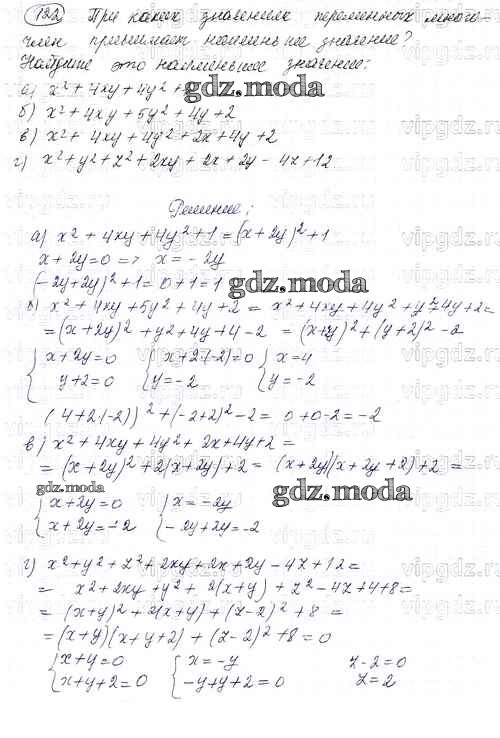 122 При каких значениях переменных много-
член принимает наименьшее значение?
Найдите это наименьшее значение:
а) x² + 4xy + 4y² +
gdz.moda
б) x² + 4xy + 5y² + 4y + 2
в) x² + 4xy + 4y² + 2x + 4y + 2
г) x² + y² + z² + 2xy + 2x + 2y - 4z + 12
Решение:
а) x² + 4xy + 4y² + 1 = (x + 2y)² + 1
x + 2y = 0 => x = -2y
(-2y + 2y)² + 1 = 0 + 1 = 1
gdz.moda
б) x² + 4xy + 5y² + 4y + 2 = x² + 4xy + 4y² + y² + 4y + 2 =
= (x + 2y)² + y² + 4y + 4 - 2 = (x + 2y)² + (y + 2)² - 2
{ x + 2y = 0 { x + 2·(-2) = 0 { x = 4
{ y + 2 = 0 { y = -2 { y = -2
(4 + 2·(-2))² + (-2 + 2)² - 2 = 0 + 0 - 2 = -2
в) x² + 4xy + 4y² + 2x + 4y + 2 =
= (x + 2y)² + 2(x + 2y) + 2 = (x + 2y)(x + 2y + 2) + 2 =
gdz.moda
gdz.moda
{ x + 2y = 0 { x = -2y
{ x + 2y = -2 { -2y + 2y = -2
г) x² + y² + z² + 2xy + 2x + 2y - 4z + 12 =
= x² + 2xy + y² + 2(x + y) + z² - 4z + 4 + 8 =
= (x + y)² + 2(x + y) + (z - 2)² + 8 =
= (x + y)(x + y + 2) + (z - 2)² + 8 = 0
{ x + y = 0 { x = -y z - 2 = 0
{ x + y + 2 = 0 { -y + y + 2 = 0 z = 2